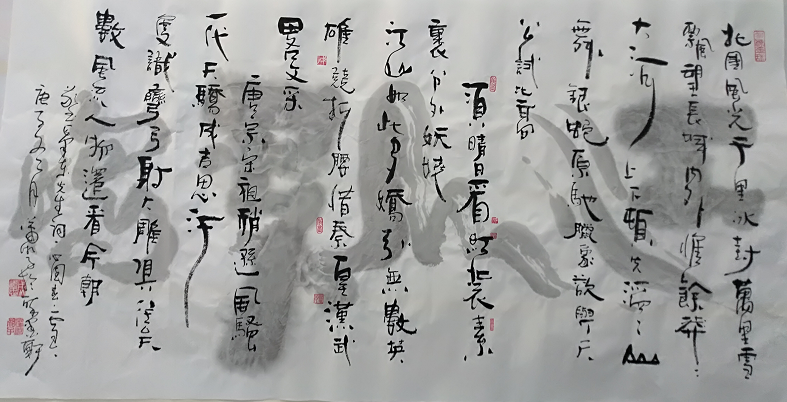 北國風光千里冰封萬里雪
飄望長城內外惟餘莽=
大河上下頓失滔=山
舞銀蛇原馳臘象欲與天
公試比高
須晴日看紅裝素
裹分外妖嬈
江山如此多嬌引無數英
雄競折腰惜秦皇漢武
略輸文采
唐宗宋祖稍遜風騷
一代天驕成吉思汗
只識彎弓射大雕俱往矣
數風流人物還看今朝